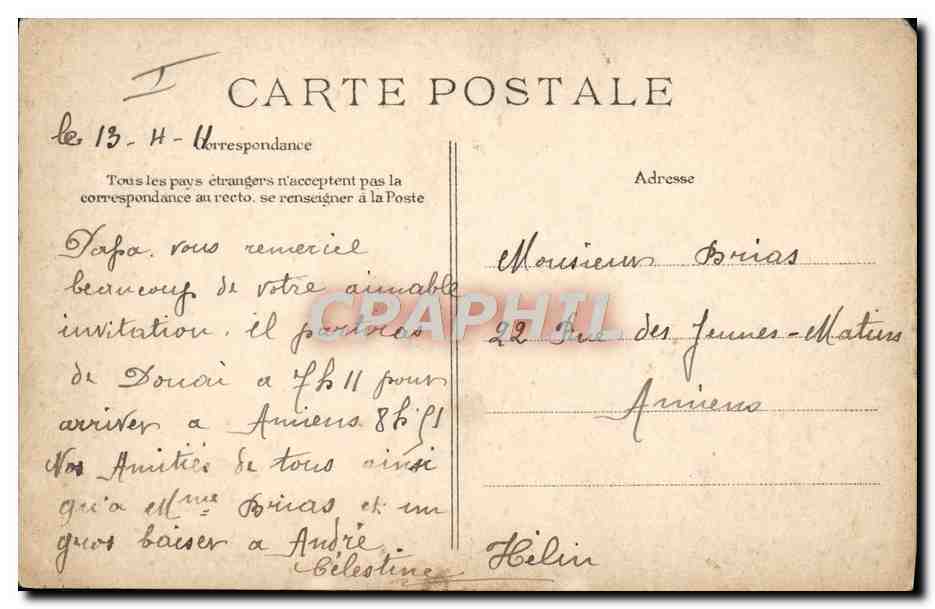 CARTE POSTALE
le 13-4-11
Correspondance
Tous les pays étrangers n'acceptent pas la
correspondance au recto. se renseigner à la Poste
Papa vous remerciel
beaucoup de votre aimable
invitation. il partiras
de Douai a 7h11 pour
arriver a Amiens 8h51
Nos Amitiés de tous ainsi
qu'a Mme Brias et un
gros baiser a André
Célestine
Adresse
Monsieur Brias
22 Rue des Jeunes-Matins
Amiens
Hélin
CPAPHIL